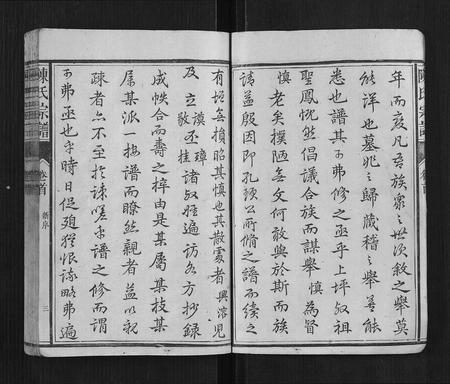 陳氏宗譜
卷首
年而度凡吾族衆之世次敘之舉莫
能洋也墓兆之歸藏稽之舉善能
悉也譜其可弗修之亟乎上坪叔祖
聖鳳恍然倡議合族而謀舉慎為督
慎老矣樸陋無文何敢與於斯而族
請益殷因即孔頭公所脩之譜而續之
有增無損昭其慎也其散處者興溶兒
及立謨璋諸叔姪遍訪各方抄錄
敬丞桂
成帙合而壽之梓由是某屬某枝某
屬某派一按譜而瞭然親者益以親
疎者亦不至於疎嗟乎譜之修而謂
可弗亟也乎時日促殖猶恨誌略弗遍
陳氏宗譜
卷首
新序
三